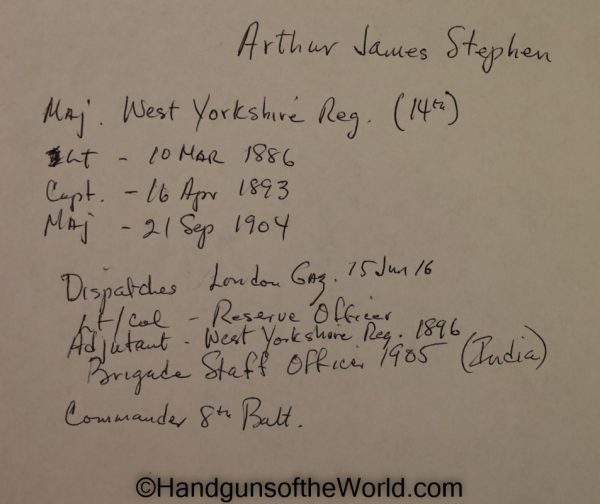 Arthur James Stephen
Maj. West Yorkshire Reg. (14th)
Lt - 10 Mar 1886
Capt. - 16 Apr 1893
Maj - 21 Sep 1904
Dispatches London Gaz. 15 Jun 16
Lt/Col - Reserve Officer
Adjutant - West Yorkshire Reg. 1896
Brigade Staff Officer 1905 (India)
Commander 8th Batt.
©HandgunsoftheWorld.com